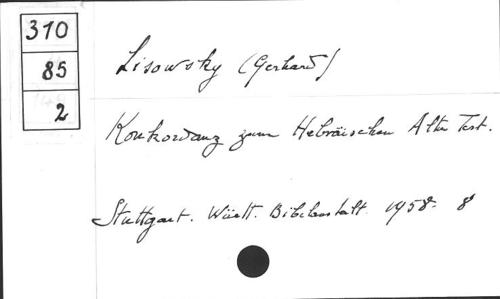 310
85
2
Lisowsky (Gerhard)
Konkordanz zum Hebräischen Alten Test.
Stuttgart. Württ. Bibelanstalt. 1958. 8